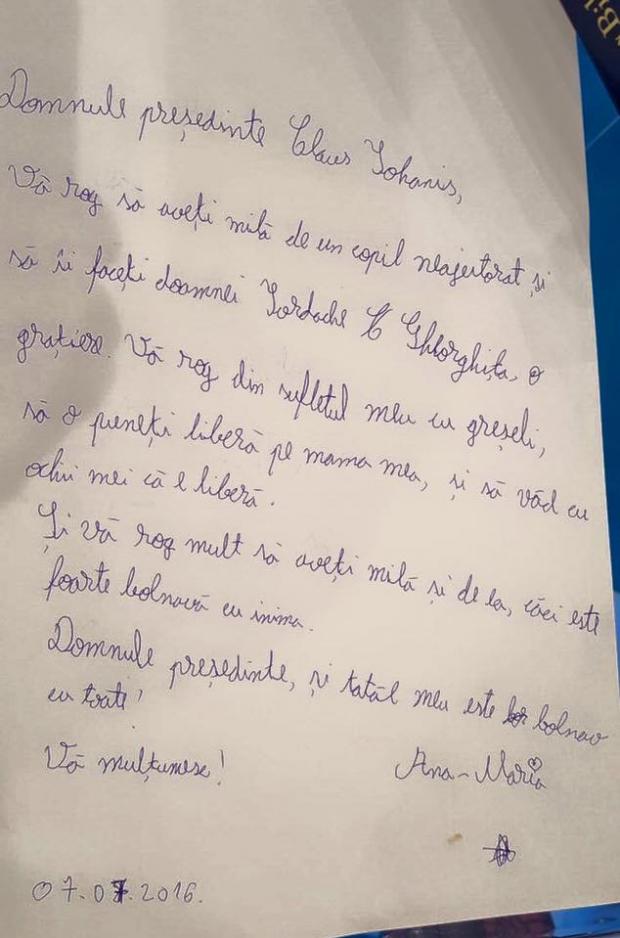 Bi
Domnule președinte Claus Iohanis,
Vă rog să aveți milă de un copil neajutorat și
să îi faceți doamnei Iordache C Ghiorghița, o
grațiere. Vă rog din sufletul meu cu greșeli,
să o puneți liberă pe mama mea, și să văd cu
ochii mei că e liberă.
Și vă rog mult să aveți milă și de ea, căci este
foarte bolnavă cu inima.
Domnule președinte, și tatăl meu este bolnav
cu toate!
Vă mulțumesc! Ana-Maria
07.07.2016.